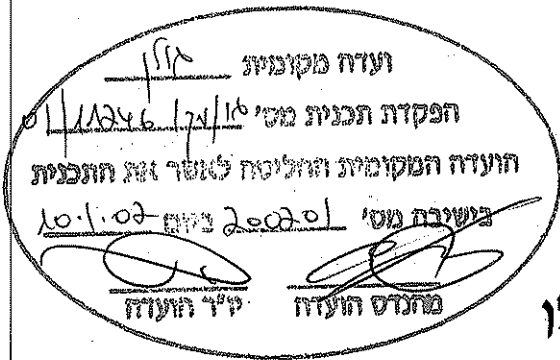 ועדה מקומית גולן
הפקדת תכנית מס' גו/מק/11246/01
הועדה המקומית החליטה לאשר את התכנית
בישיבה מס' 200201 ביום 10.1.02
מהנדס הועדה יו"ר הועדה